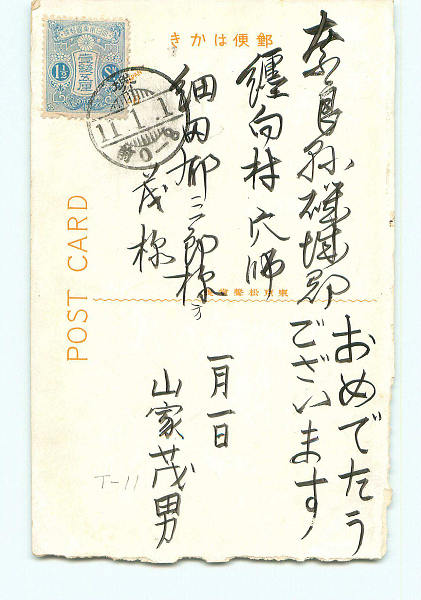 郵便はかき
奈良縣磯城郡
纏向村 穴師
細田郁三郎様方
茂様
おめでたう
ございます
一月一日
山家茂男
POST CARD
壹錢五厘
1½ Sn
11.1.1
T-11